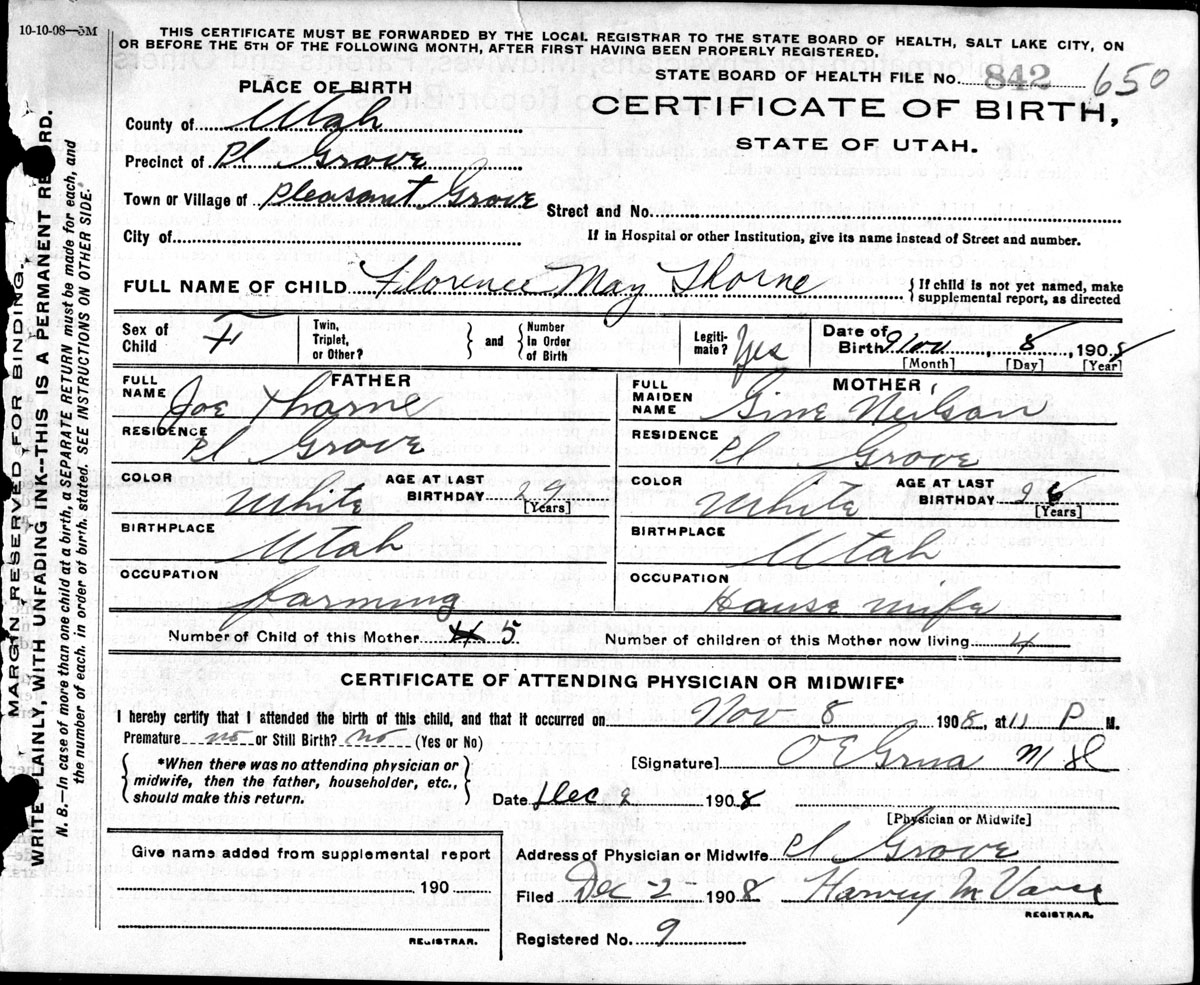 10-10-08—5M
THIS CERTIFICATE MUST BE FORWARDED BY THE LOCAL REGISTRAR TO THE STATE BOARD OF HEALTH, SALT LAKE CITY, ON
OR BEFORE THE 5TH OF THE FOLLOWING MONTH, AFTER FIRST HAVING BEEN PROPERLY REGISTERED.
STATE BOARD OF HEALTH FILE No. 842 650
PLACE OF BIRTH
CERTIFICATE OF BIRTH,
STATE OF UTAH.
County of Utah
Precinct of Pl Grove
Town or Village of Pleasant Grove
Street and No.
City of
If in Hospital or other Institution, give its name instead of Street and number.
FULL NAME OF CHILD Florence May Thorne { If child is not yet named, make
supplemental report, as directed
Sex of Child F
Twin, Triplet, or Other? } and { Number In Order of Birth
Legiti-mate? Yes
Date of Birth Nov 8, 1908
[Month] [Day] [Year]
FATHER
FULL NAME Joe Thorne
RESIDENCE Pl Grove
COLOR White AGE AT LAST BIRTHDAY 29 [Years]
BIRTHPLACE Utah
OCCUPATION farming
MOTHER
FULL MAIDEN NAME Gine Neilson
RESIDENCE Pl Grove
COLOR White AGE AT LAST BIRTHDAY 26 [Years]
BIRTHPLACE Utah
OCCUPATION House wife
Number of Child of this Mother 4 5
Number of children of this Mother now living 4
CERTIFICATE OF ATTENDING PHYSICIAN OR MIDWIFE*
I hereby certify that I attended the birth of this child, and that it occurred on Nov 8 1908, at 11 P M.
Premature no or Still Birth? no (Yes or No)
{ *When there was no attending physician or
midwife, then the father, householder, etc.,
should make this return. }
[Signature] O E Grua M D
Date Dec 2 1908
[Physician or Midwife]
Give name added from supplemental report
190
REGISTRAR.
Address of Physician or Midwife Pl Grove
Filed Dec-2- 1908 Harvey M
REGISTRAR.
Registered No. 9
MARGIN RESERVED FOR BINDING.
WRITE PLAINLY, WITH UNFADING INK--THIS IS A PERMANENT RECORD.
N. B.—In case of more than one child at a birth, a SEPARATE RETURN must be made for each, and
the number of each, in order of birth, stated. SEE INSTRUCTIONS ON OTHER SIDE.